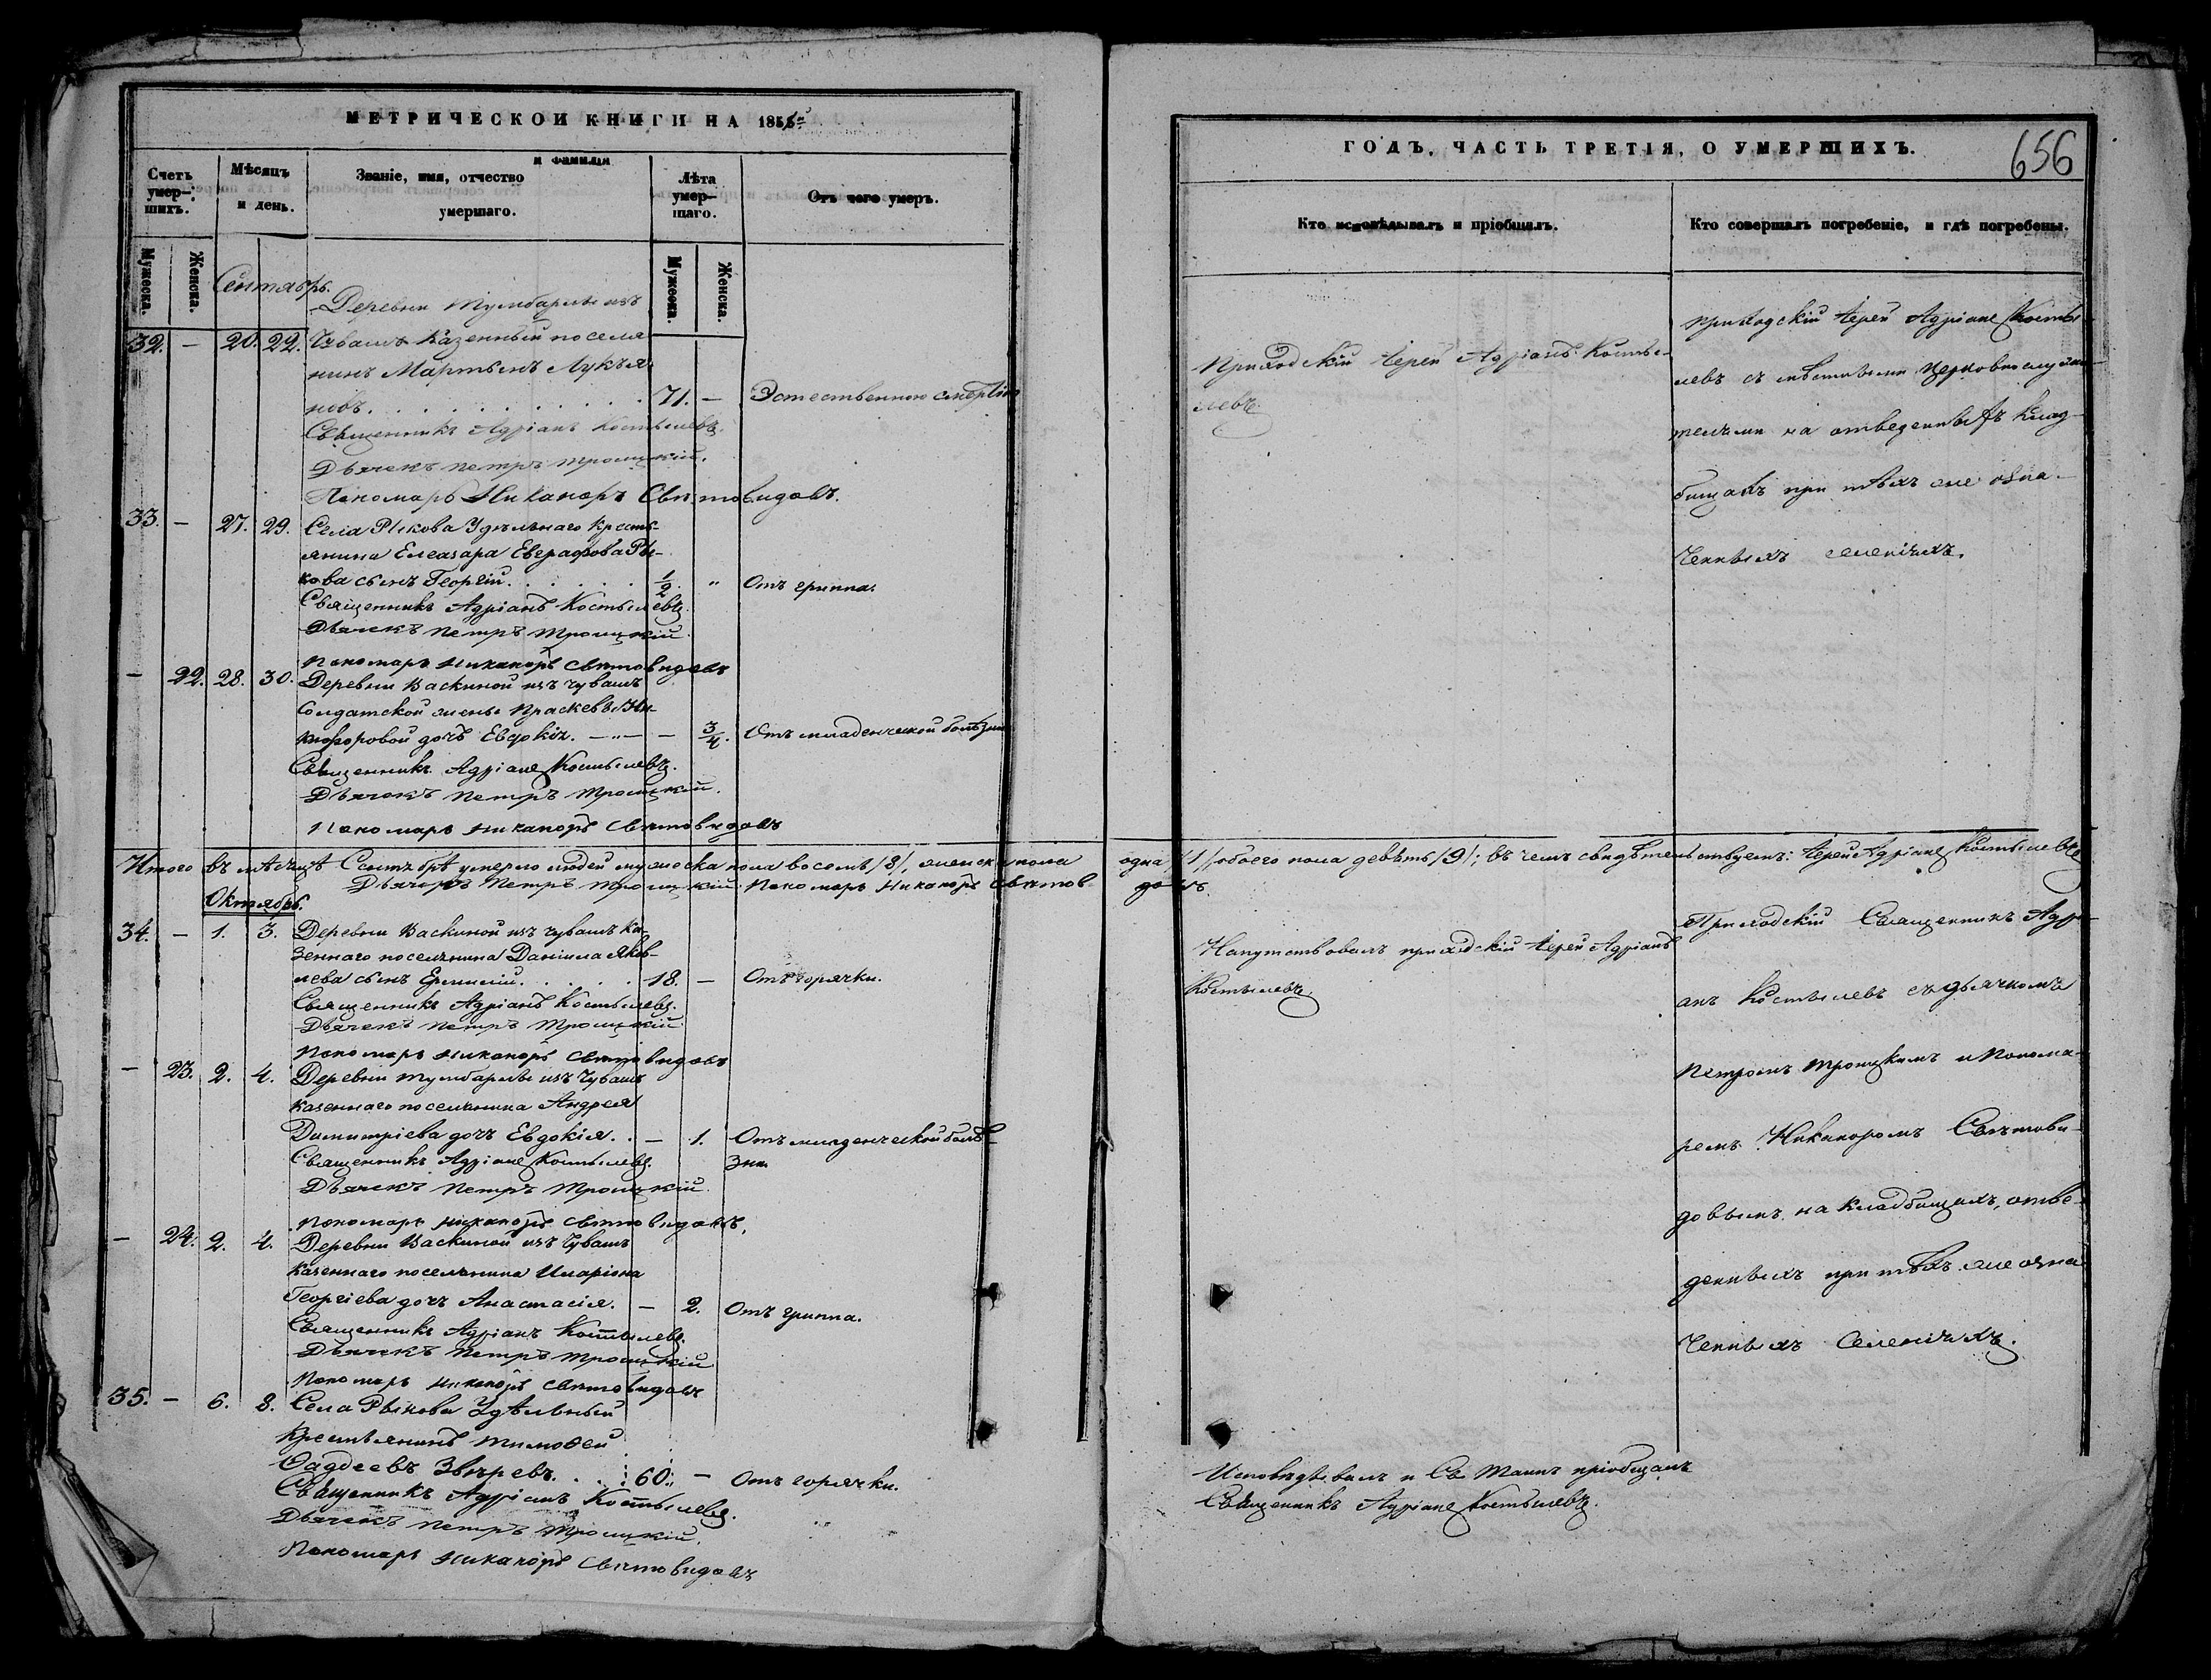 МЕТРИЧЕСКОЙ КНИГИ НА 185
Счетъ умерших.
Мѣсяцъ и день.
Званіе, имя, отчество и фамилія умершаго.
Лѣта умершаго.
Отъ чего умеръ.
Мужеска.
Женска.
Мужеска.
Женска.
Сентябрь.
Деревни Тумбарлы изъ
32. — 20. 22. Чувашъ казенный поселя
нинъ Мартынъ Лукья
новъ. 71. — Эстественною смертію
Священникъ Адріанъ Костылевъ.
Дьячекъ Петръ Троицкій.
Пономарь Никаноръ Святовидовъ.
33. — 27. 29. Села Рыкова Удѣльнаго кресть-
янина Елеазара Евграфова Ры-
кова сынъ Георгій. 1/2 " Отъ гриппа.
Священникъ Адріанъ Костылевъ.
Дьячекъ Петръ Троицкій.
Пономарь Никаноръ Святовидовъ
— 22. 28. 30. Деревни Васкиной изъ чувашъ
Солдатской жены Праскевы Ни-
кифоровой дочь Евдокія. — " — — 3/4. Отъ младенческой болѣзни
Священникъ Адріанъ Костылевъ.
Дьячекъ Петръ Троицкій.
Пономарь Никаноръ Святовидовъ
Итого въ мѣсяцѣ Сентябрѣ умерло людей мужеска пола восемь /8/, женска пола
Дьячекъ Петръ Троицкій. Пономарь Никаноръ Святов
Октябрь.
34. — 1. 3. Деревни Васкиной изъ чувашъ ка-
зеннаго поселянина Даніила Яков-
лева сынъ Ермилій. 18. — Отъ горячки.
Священникъ Адріанъ Костылевъ.
Дьячекъ Петръ Троицкій.
Пономарь Никаноръ Святовидовъ
— 23. 2. 4. Деревни Тумбарлы изъ чувашъ
казеннаго поселянина Андрея
Димитріева дочь Евдокія. — 1. Отъ младенческой болѣ-
зни.
Священникъ Адріанъ Костылевъ.
Дьячекъ Петръ Троицкій.
Пономарь Никаноръ Святовидовъ.
— 24. 2. 4. Деревни Васкиной изъ чувашъ
казеннаго поселянина Иларіона
Георгіева дочь Анастасія. — 2. Отъ гриппа.
Священникъ Адріанъ Костылевъ.
Дьячекъ Петръ Троицкій
Пономарь Никаноръ Святовидовъ
35. — 6. 8. Села Рыкова Удѣльный
крестьянинъ Тимоѳей
Ѳаддеевъ Звѣревъ. 60. — Отъ горячки.
Священникъ Адріанъ Костылевъ.
Дьячекъ Петръ Троицкій.
Пономарь Никаноръ Святовидовъ
ГОДЪ, ЧАСТЬ ТРЕТІЯ, О УМЕРШИХЪ.
656
Кто исповѣдывалъ и пріобщалъ.
Кто совершалъ погребеніе, и гдѣ погребены.
Приходскій Іерей Адріанъ Косты-
левъ.
Приходскій Іерей Адріанъ Косты
левъ съ мѣстными церковнослужи
телями на отведенныхъ клад-
бищахъ при тѣхъ же озна-
ченныхъ селеніяхъ.
одна /1/ обоего пола девять /9/; въ чемъ свидѣтельствуемъ: Іерей Адріанъ Костылевъ
довъ.
Напутствовалъ приходскій Іерей Адріанъ
Костылевъ.
Приходскій Священникъ Адрі-
анъ Костылевъ съ дьячкомъ
Петромъ Троицкимъ и Понома-
ремъ Никаноромъ Святови-
довымъ на кладбищахъ, отве-
денныхъ при тѣхъ же озна
ченныхъ Селеніяхъ.
Исповѣдывалъ и Св. Таинъ пріобщалъ
Священникъ Адріанъ Костылевъ.